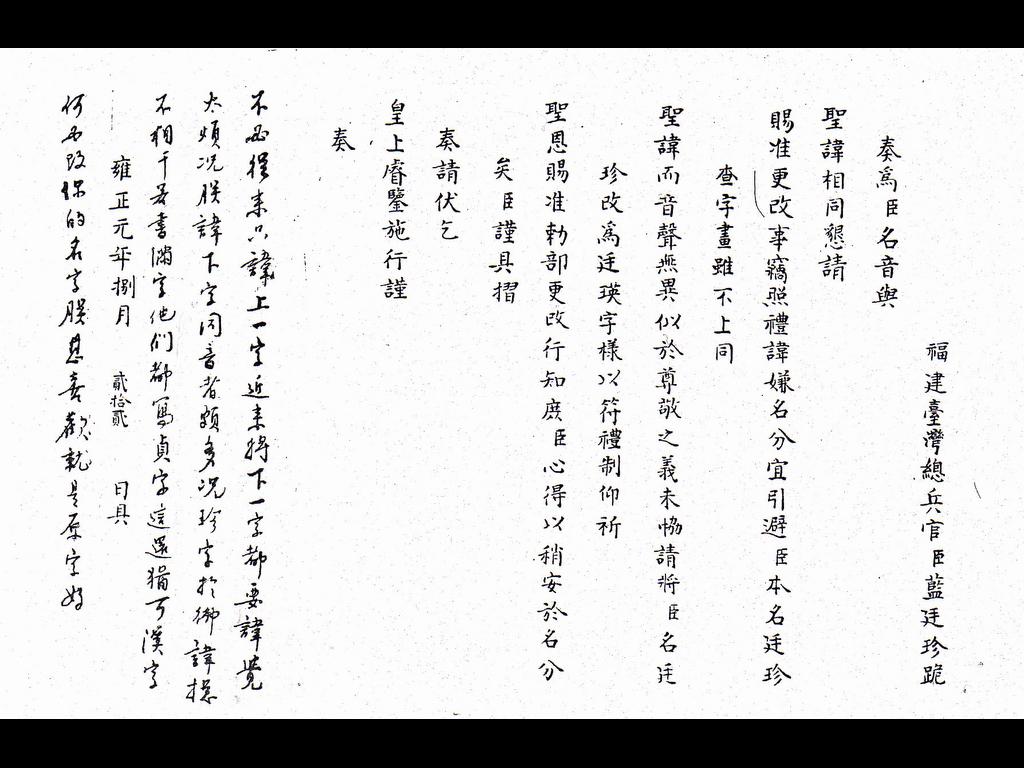 福建臺灣總兵官臣藍廷珍跪
奏爲臣名音與
聖諱相同懇請
賜准更改事竊照禮諱嫌名分宜引避臣本名廷珍
查字畫雖不上同
聖諱而音聲無異似於尊敬之義未恊請將臣名廷
珍改爲廷瑛字樣以符禮制仰祈
聖恩賜准勅部更改行知庻臣心得以稍安於名分
矣臣謹具摺
奏請伏乞
皇上睿鑒施行謹
奏
不必從來只諱上一字近來將下一字都要諱覺
太煩况朕諱下字同音者頗多况珍字於御諱
不相干若書滿字他們都寫貞字這還猶可漢字
雍正元年捌月 貳拾貳 日具
何改你的名字朕甚喜歡就是原字好